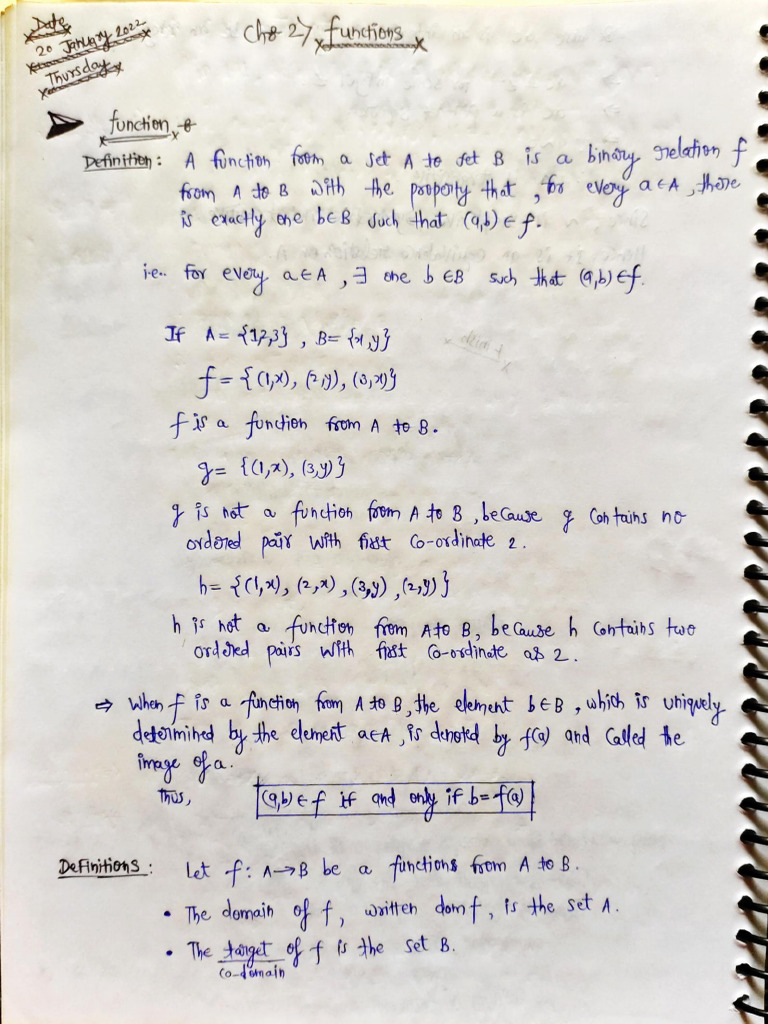 Date
20 January 2022
Thursday
Ch:- 2> functions
function :-
Definition : A function from a set A to set B is a binary relation f
from A to B with the property that , for every a∈A , there
is exactly one b∈B such that (a,b) ∈ f.
i.e.. for every a∈A , ∃ one b∈B such that (a,b) ∈ f.
If A = {1,2,3} , B = {x,y}
f = { (1,x), (2,y), (3,x)}
f is a function from A to B.
g = { (1,x), (3,y) }
g is not a function from A to B , because g contains no
ordered pair with first co-ordinate 2.
h = { (1,x), (2,x) , (3,y) , (2,y) }
h is not a function from A to B , because h contains two
ordered pairs with first co-ordinate as 2.
⇒ When f is a function from A to B , the element b∈B , which is uniquely
determined by the element a∈A , is denoted by f(a) and called the
image of a.
Thus, (a,b) ∈ f if and only if b = f(a)
Definitions : Let f : A→B be a functions from A to B.
• The domain of f, written dom f , is the set A.
• The target of f is the set B.
co-domain